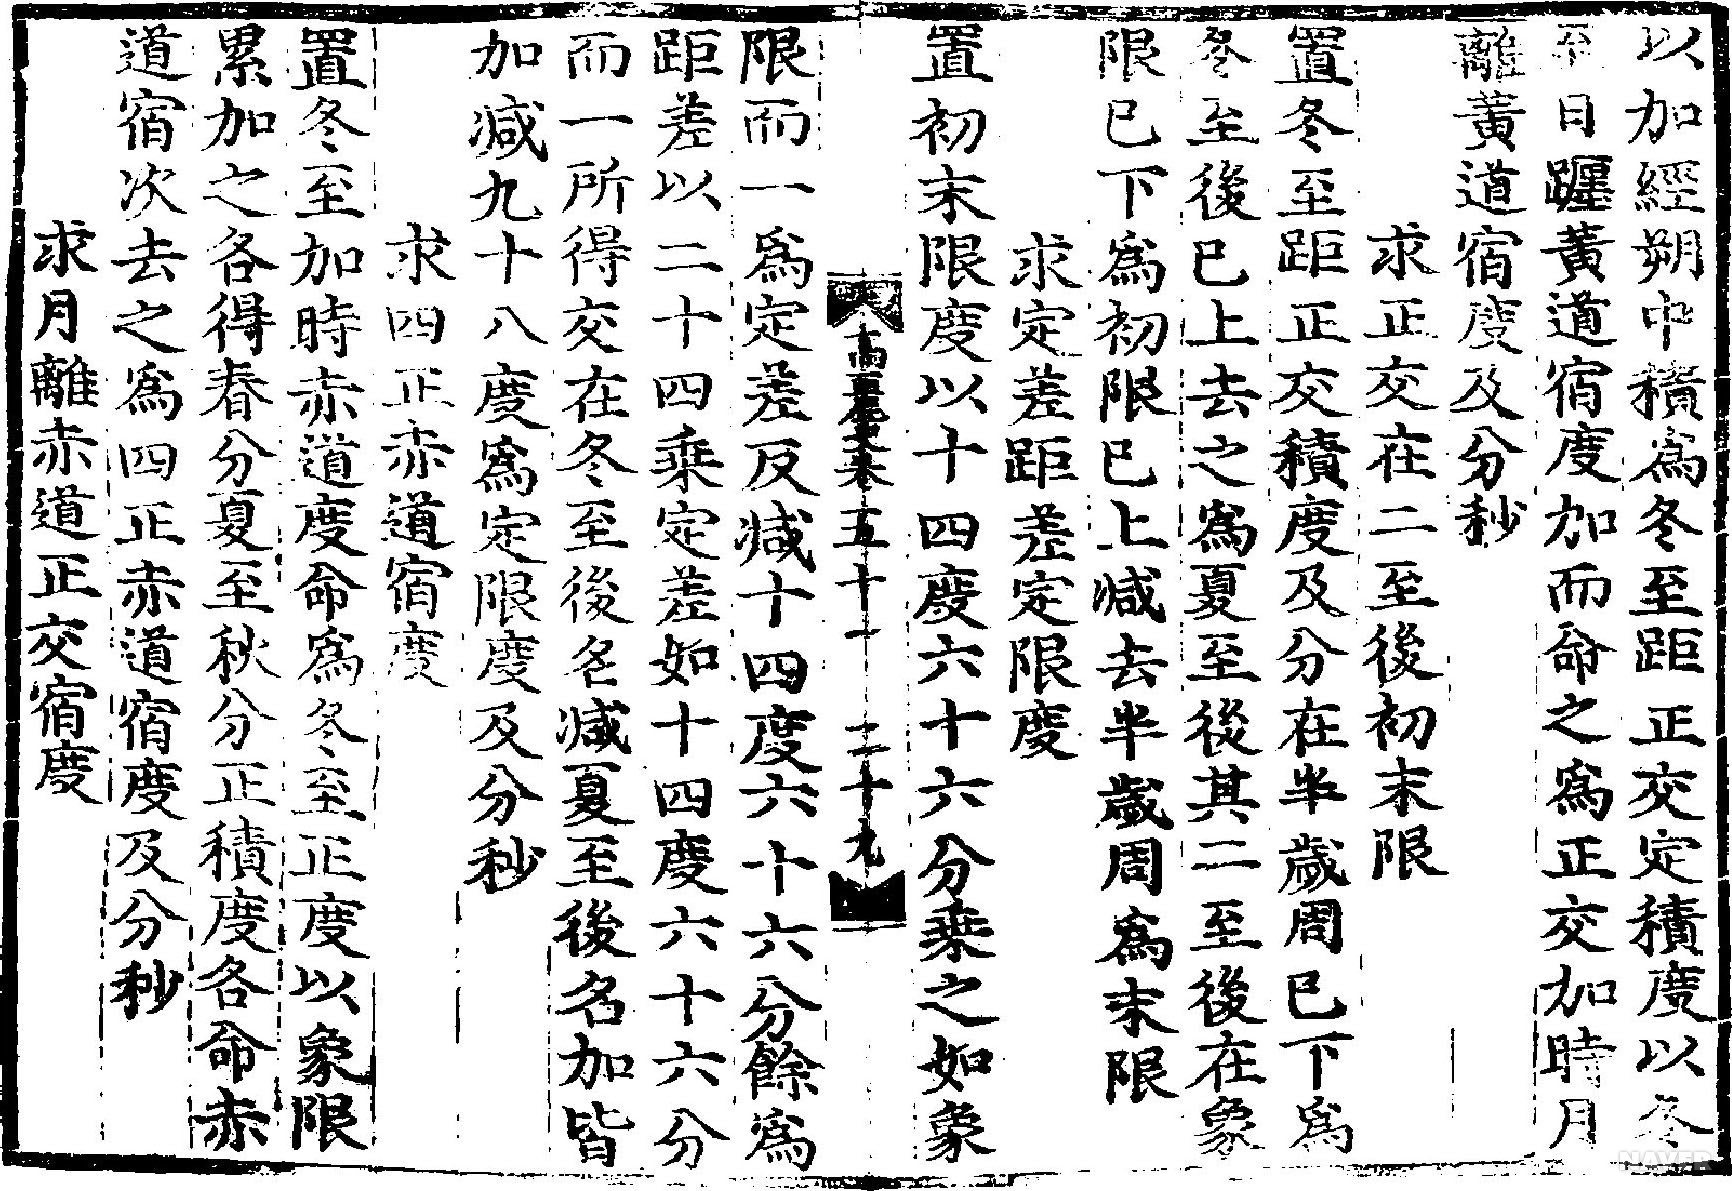 以加經朔中積爲冬至距正交定積度以冬
至日躔黃道宿度加而命之爲正交加時月
離黃道宿度及分秒
求正交在二至後初末限
置冬至距正交積度及分在半歲周已下爲
冬至後已上去之爲夏至後其二至後在象
限已下爲初限已上減去半歲周爲末限
求定差距差定限度
置初末限度以十四度六十六分乘之如象
高麗史卷五十一 二十九
限而一爲定差反減十四度六十六分餘爲
距差以二十四乘定差如十四度六十六分
而一所得交在冬至後名減夏至後名加皆
加減九十八度爲定限度及分秒
求四正赤道宿度
置冬至加時赤道度命爲冬至正度以象限
累加之各得春分夏至秋分正積度各命赤
道宿次去之爲四正赤道宿度及分秒
求月離赤道正交宿度
NAVER